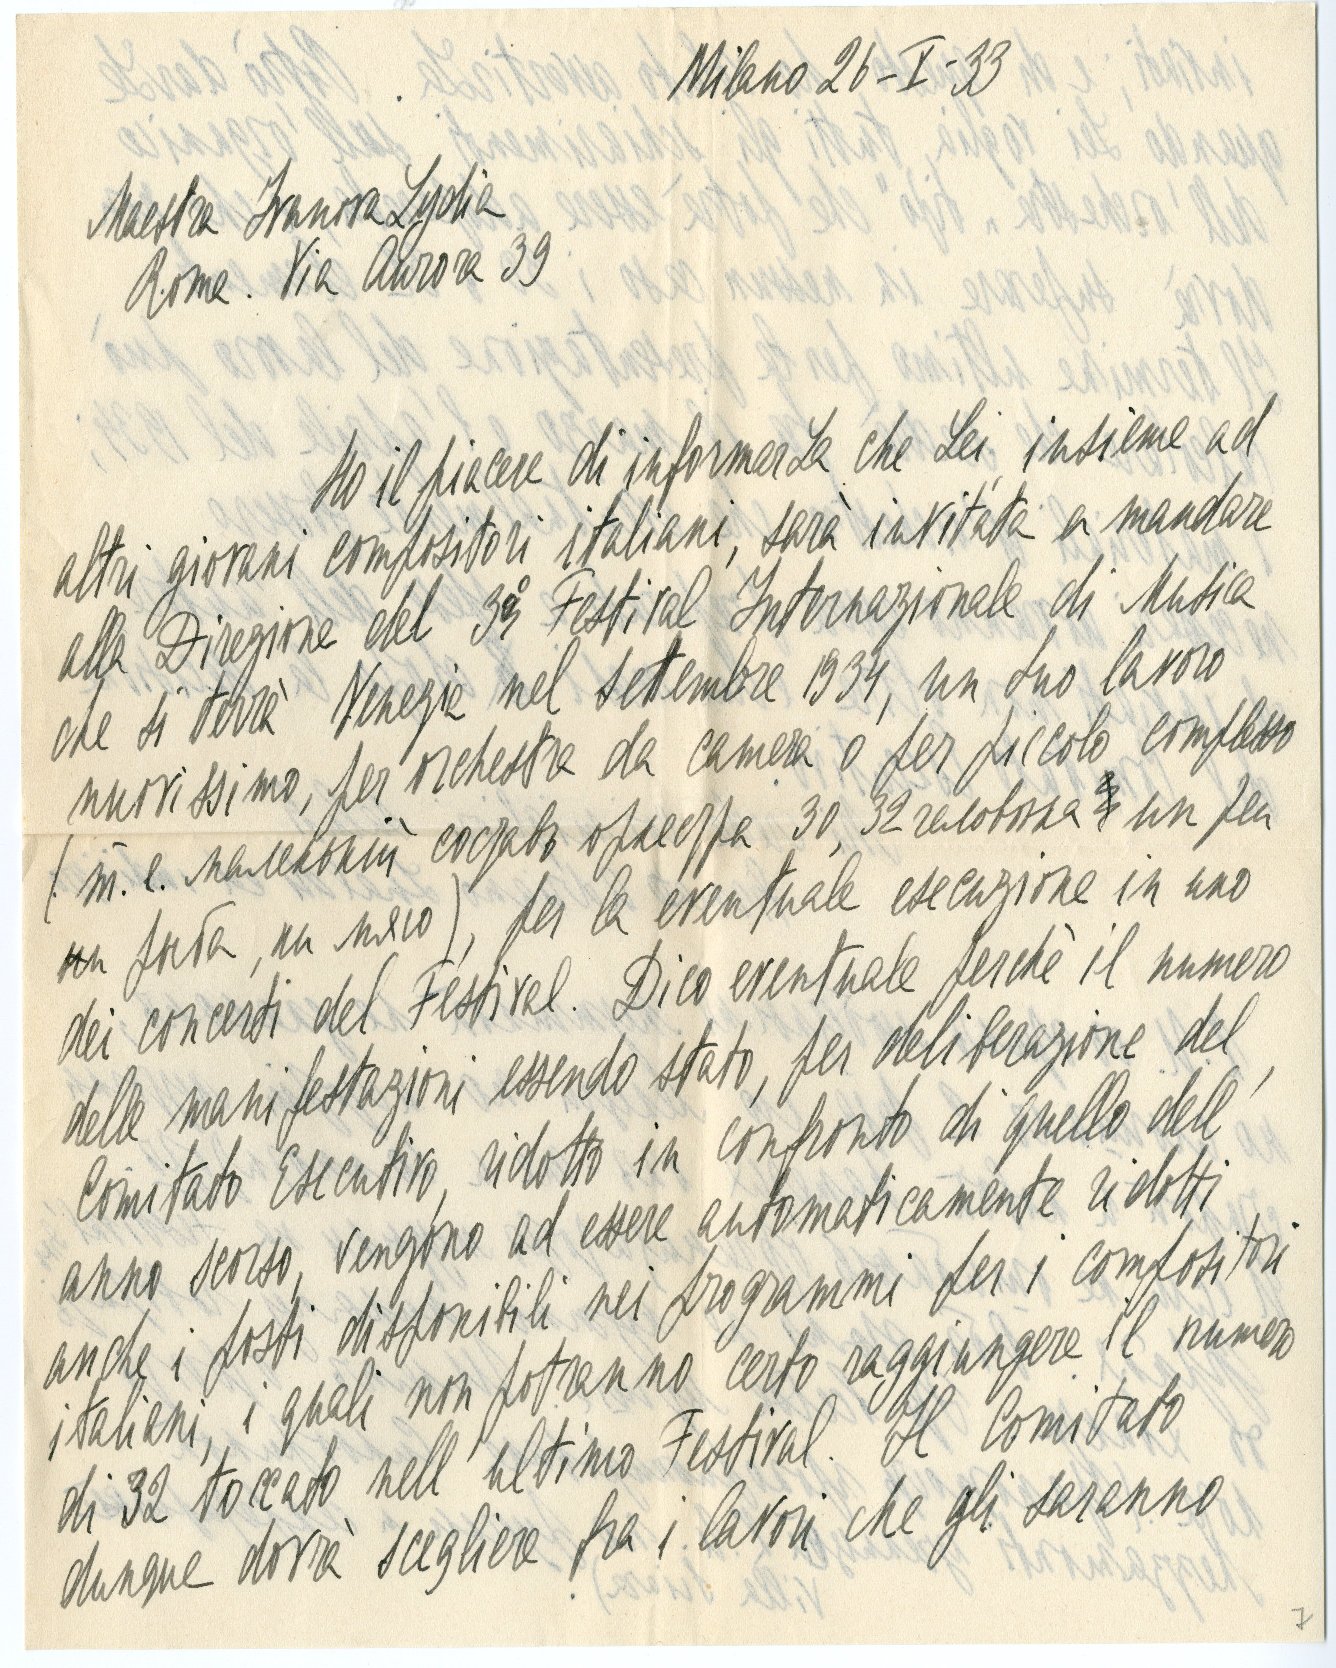 Milano 26-V-33
Maestra Ivanova Lydia
Roma. Via Aurora 39
Ho il piacere di informarLa che Lei, insieme ad
altri giovani compositori italiani, sarà invitata a mandare
alla Direzione del 3º Festival Internazionale di Musica
che si terrà Venezia nel settembre 1934, un Suo lavoro
nuovissimo, per orchestra da camera o per piccolo complesso
(т. е. маленькiй составъ оркестра 30, 32 человѣка
ни рыба, ни мясо), per la eventuale esecuzione in uno
dei concerti del Festival. Dico eventuale perchè il numero
delle manifestazioni essendo stato, per deliberazione del
Comitato Esecutivo, ridotto in confronto di quello dell'
anno scorso, vengono ad essere automaticamente ridotti
anche i posti disponibili nei programmi per i compositori
italiani, i quali non potranno certo raggiungere il numero
di 32 toccato nell'ultimo Festival. Il Comitato
dunque dovrà scegliere fra i lavori che gli saranno
7